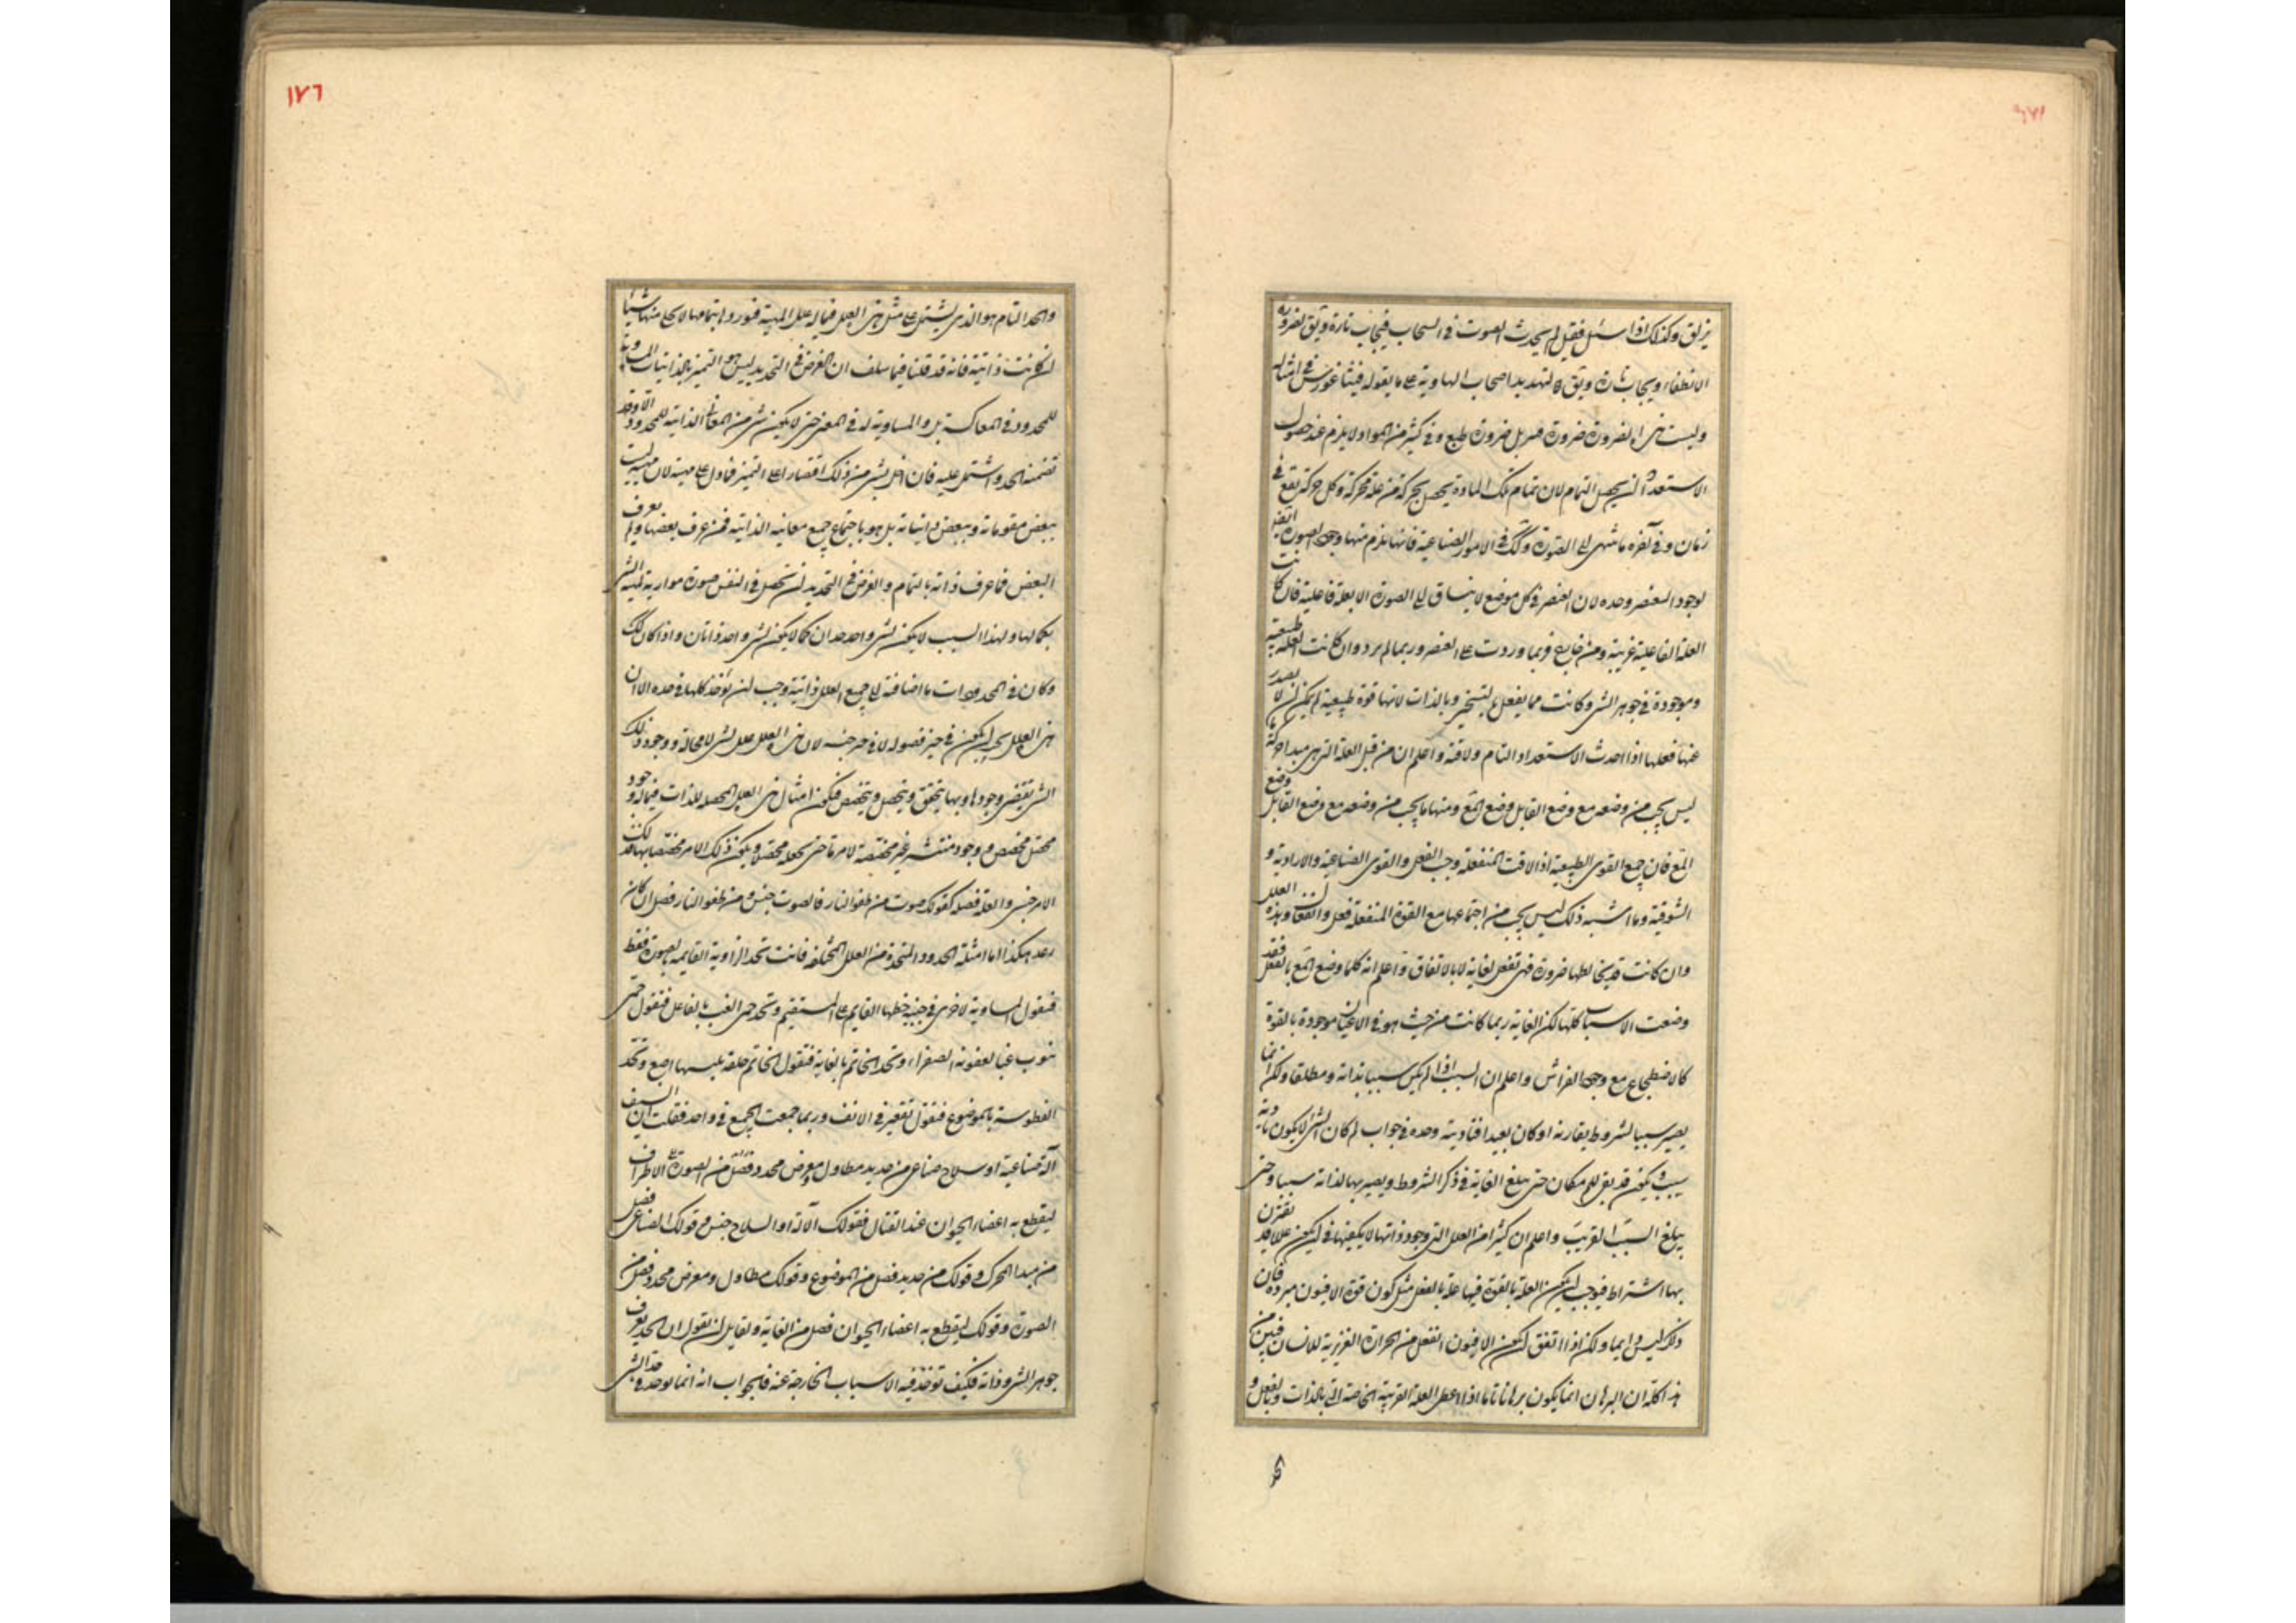 يزلق وكذلك اذا سئل فقيل لم يحدث الصوت فى السحاب فيجاب تارة ويق لضرورة
الانطفاء ويجاب تارة ويق لتهديد اصحاب الهاوية على ما يقوله فيثاغورس فى امثاله
وليست هى الضرورة ضرورة قسر بل ضرورة طبع وفى كثير من المواد لا يلزم عند حصول
الاستعداد ان يحصل التمام لان تمام تلك المادة يحصل بحركة من علة محركة وكل حركة يقع فى
زمان وفى آخره ما ينتهى الى الصورة وكك فى الامور الصناعية فانها يلزم منها وجود الصورة ايضا
لوجود العنصر وحده لان العنصر فى كل موضع لا ينساق الى الصورة الا بعلة فاعلية فان كانت
العلة الفاعلية غريبة ومن خارج فربما وردت على العنصر وربما لم يرد وان كانت العلة طبيعية
وموجودة فى جوهر الشى وكانت مما يفعل بالتسخير وبالذات لانها قوة طبيعية لم يمكن ان لا يصدر
عنها فعلها اذا احدث الاستعداد التام ولاقته واعلم ان من قبل العلة التى هى مبدا حركة ما
ليس يجب من وضعه مع وضع القابل وضع المع ومنها ما يجب من وضعه مع وضع القابل وضع
المع فان جميع القوى الطبيعية اذا لاقت المنفعلة وجب الفعل والقوى الصناعية والارادية و
الشوقية وما اشبه ذلك ليس يجب من اجتماعها مع القوة المنفعلة فعل وانفعال وهذه العلل
وان كانت قد يخالطها ضرورة فهى تفعل لغاية لا بالاتفاق واعلم انه كلما وضع المع بالفعل فقد
وضعت الاسباب كلها لكن الغاية ربما كانت من حيث هو فى الاعيان موجودة بالقوة
كالاضطجاع مع وجود الفراش واعلم ان السبب اذا لم يكن سببا بذاته ومطلقا ولكن انما
يصير سببا لشروط يقارنه او كان بعيدا فتاديته وحده فى جواب لم كان الشى لا يكون تادية
سبب ويكون قد بقى للم مكان حتى يبلغ الغاية فى ذكر الشروط ويصير بها لذاته سببا وحتى
يبلغ السبب القريب واعلم ان كثيرا من العلل التى وجود ذواتها لا يكفيها فى ان يكون عللا قد يقترن
بها اشتراط فيوجب ان يكون العلة بالقوة فيها علة بالفعل مثل كون قوة الافيون مبردة فان
ذلك ليس دايما ولكن اذا اتفق ان يكون الافيون انفعل من الحرارة الغريزية للانسان فبين من
هذا كله ان البرهان انما يكون برهانا تاما اذا اعطى العلة القريبة الخاصة التى بالذات وبالفعل و
١٧٦
والحد التام هو الذى يشتمل على مثل هى العلل فما له علل المهية فتورد باتمامها لا يخل منها شيئا
ان كانت ذاتية فانه قد قلنا فيما سلف ان الغرض فى التحديد ليس هو التميز بالذاتيات المساوية
للمحدود فى المعاكسة بل والمساوية له فى المعنى حتى لا يكون شى من المعانى الذاتية للمحدود الا وقد
تضمنه الحد واشتمل عليه فان اخل بشى من ذلك اقتصارا على التميز فما دل على مهيته لان مهيته ليست
ببعض مقوماته وببعض ذاتياته بل هو باجتماع جميع معانيه الذاتية فمن عرف بعضها ولم يعرف
البعض فما عرف ذاته بالتمام والغرض فى التحديد ان تحصل فى النفس صورة موازية لمهية الشى
بكمالها ولهذا السبب لا يكون لشى واحد حدان كما لا يكون لشى واحد ذاتان واذا كان كذلك
وكان فى المحدودات ما اضافته الى جميع العلل ذاتية وجب ان توخذ كلها فى حده الا ان
هى العلل يجب ان يكون فى حيز فصوله لا فى حيز جنسه لان هى العلل علل لشى لا محالة ووجود ذلك
الشى يقتضى وجودها وبها يتحقق ويتحصل ويتخصص فيكون امثال هى العلل المحصلة للذات فيما له وجود
محصل مخصص ووجود منتشر غير مختصة لامر ما حتى يجعله محصلا ويكون ذلك الامر مختصا بها فذلك
الامر جنس والعلة فصله كقولك صوت من طفو النار فالصوت جنس ومن طفو النار فصل ان كان
رعد هكذا اما امثلة الحدود المتخذة من العلل المختلفة فانت تحد الزاوية القايمة بالصورة فقط
فتقول المساوية لاخرى فى جنبة خطها القايم على المستقيم وتحد حمى الغب بالفاعل فتقول حمى
تنوب غبا لعفونة الصفراء وتحد الخاتم بالغاية فتقول الخاتم حلقة يلبسها اصبع وتحد
الفطوسة بالموضوع فتقول تقعير فى الانف وربما جمعت الجميع فى واحد فقلت ان السيف
آلة صناعية او سلاح صناعى من حديد مطاول معرض محدد فصل من الصورة على الاطراف
ليقطع به اعضاء الحيوان عند القتال فقولك الآلة او السلاح جنس وقولك الصناعى فصل
من مبدا المحرك وقولك من حديد فصل من الموضوع وقولك مطاول ومعرض محدد فصل من
الصورة وقولك ليقطع به اعضاء الحيوان فصل من الغاية ولقايل ان يقول ان الحد يعرف
جوهر الشى وذاته فكيف توخذ فيه الاسباب الخارجة عنه فالجواب انه انما توخذ فى حد الشى